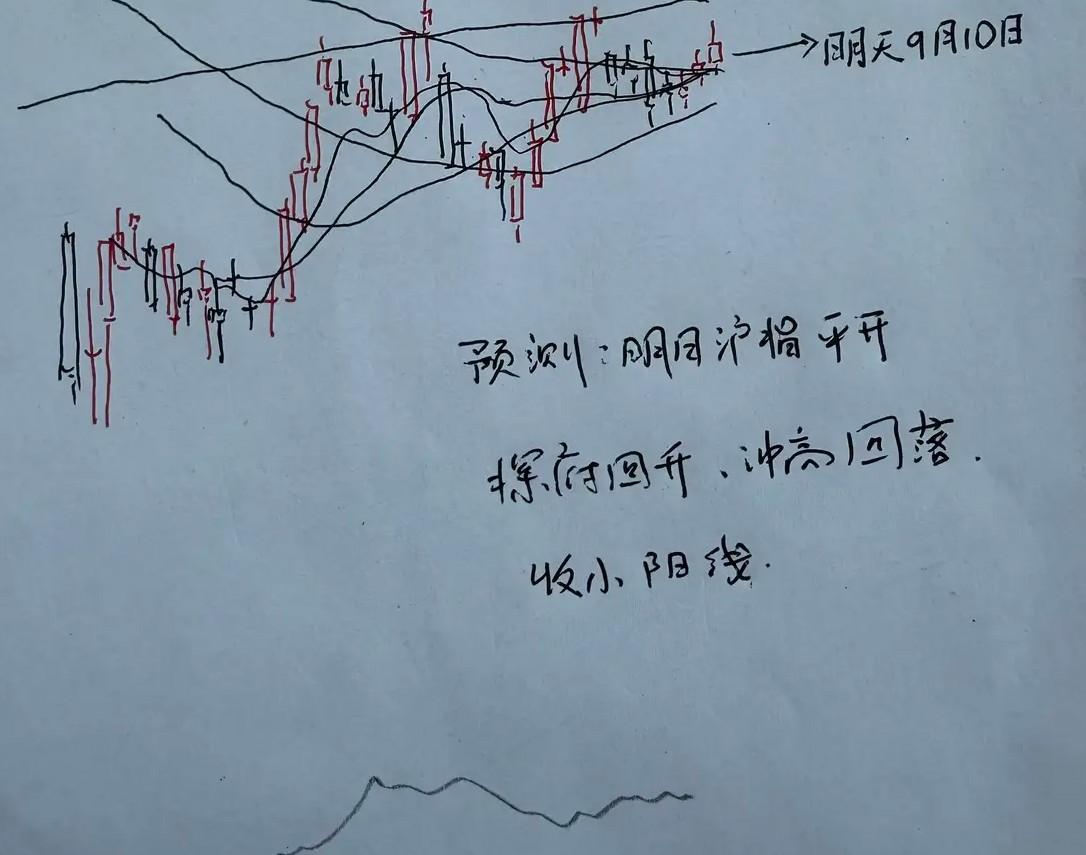 明天9月10日
预测:明日沪指平开
探府回升、冲高回落.
收小阳线.